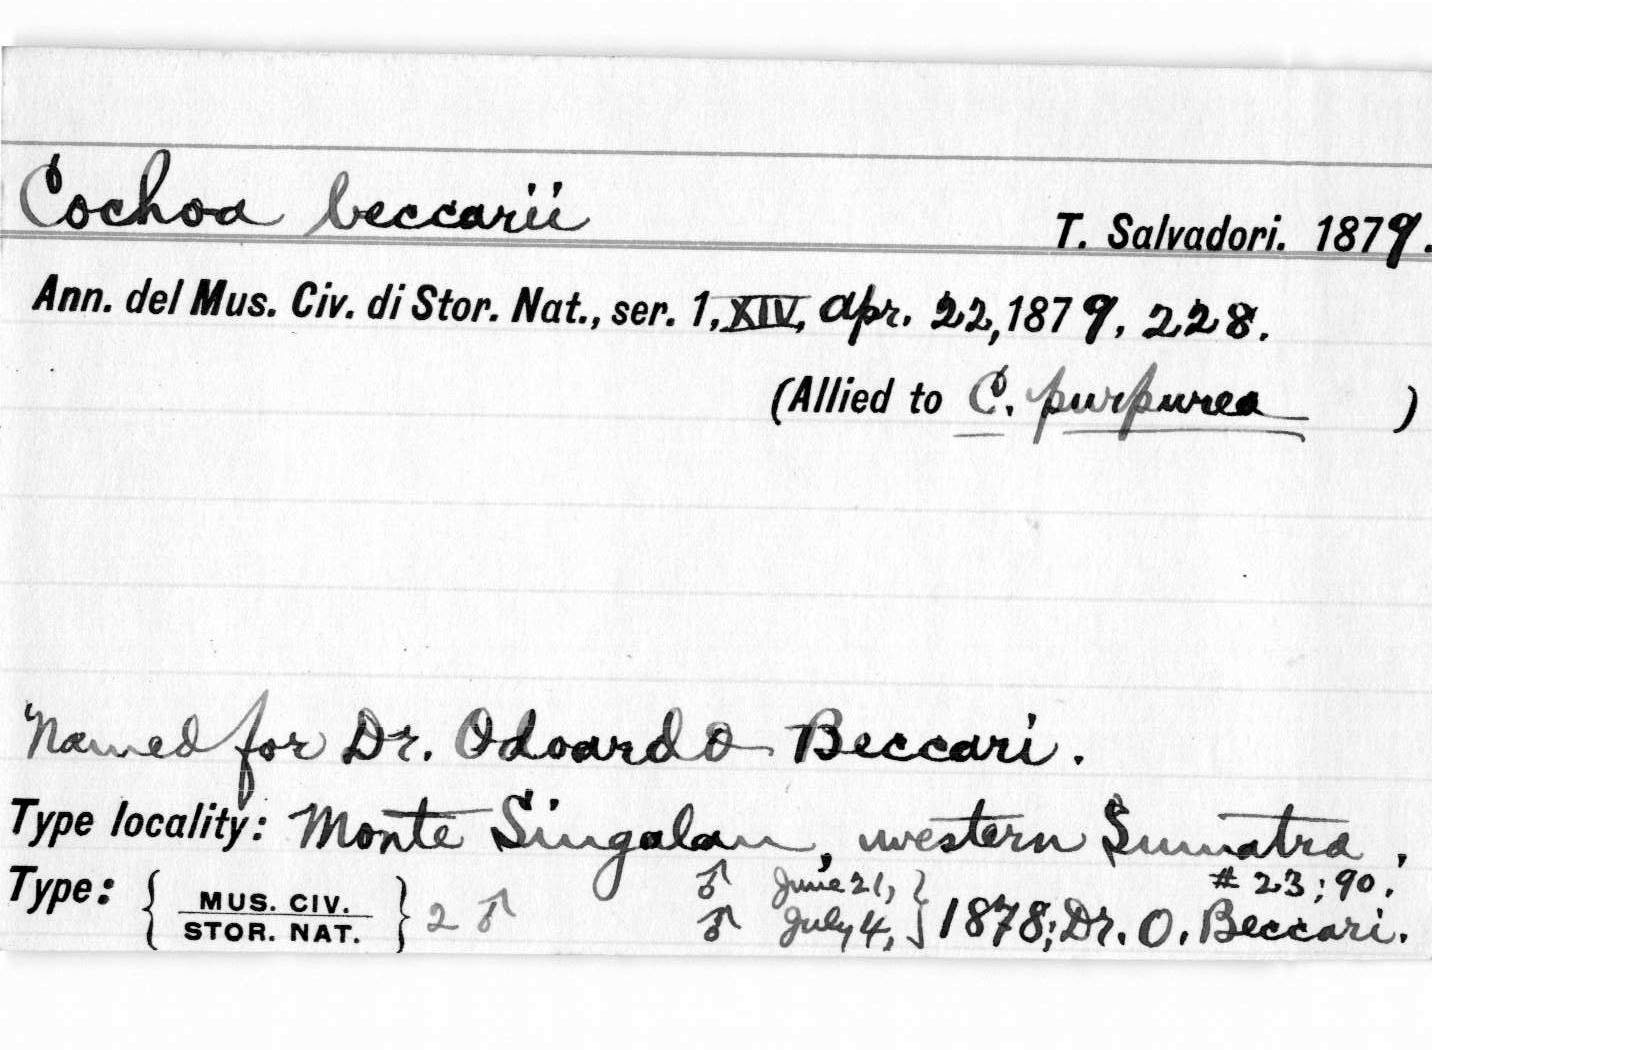 Cochoa beccarii T. Salvadori. 1879.
Ann. del Mus. Civ. di Stor. Nat., ser. 1, XIV, Apr. 22, 1879, 228.
(Allied to C. purpurea )
Named for Dr. Odoardo Beccari.
Type locality: Monte Singalan, western Sumatra,
Type: { MUS. CIV. } 2 ♂ ♂ June 21, } # 23; 90.
STOR. NAT. ♂ July 4, 1878; Dr. O. Beccari.